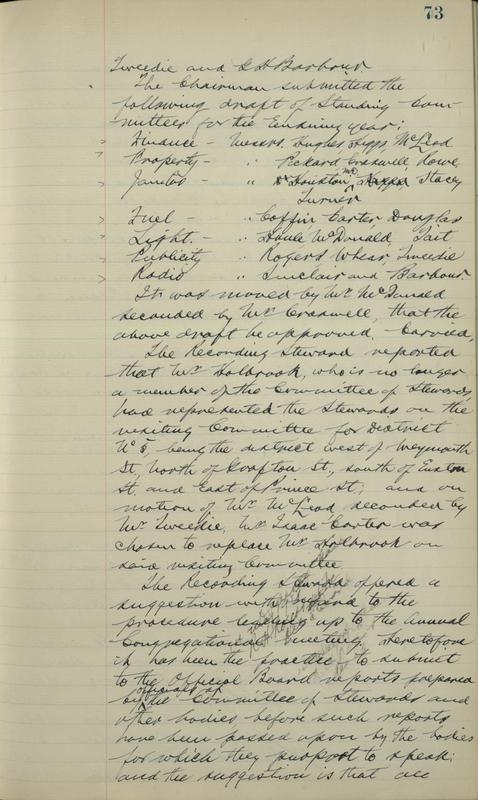 73
Tweedie and G H Barbour
The Chairman submitted the
following draft of Standing Com-
mittees for the Ensuing year:
Finance - Messrs. Hughes Higgs, McLeod
Property - " Pickard Craswell Howe
Janitor - " Dr Houston, Stacey
Turner
Fuel - " Coffin Carter Douglas
Light. - " McDonald, Tait
Publicity " Rogers Whear, Tweedie
Radio " Sinclair and Barbour.
It was moved by Mr. McDonald
seconded by Mr Craswell, that the
above draft be approved. - Carried.
The Recording Steward reported
that Mr Holbrook, who is no longer
a member of the Committee of Stewards,
had represented the Stewards on the
visiting Committee for District
No 5, being the district west of Weymouth
St., North of Grafton St., south of Euston
St. and East of Prince St; and on
motion of Mr McLeod, seconded by
Mr Tweedie, Mr Isaac Carter was
chosen to replace Mr Holbrook on
said visiting Committee.
The Recording Steward offered a
suggestion with regard to the
procedure leading up to the annual
Congregational meeting. Heretofore
it has been the practice to submit
to the Official Board reports prepared
by officials of the Committee of Stewards and
other bodies before such reports
have been passed upon by the bodies
for which they purport to speak;
and the suggestion is that all